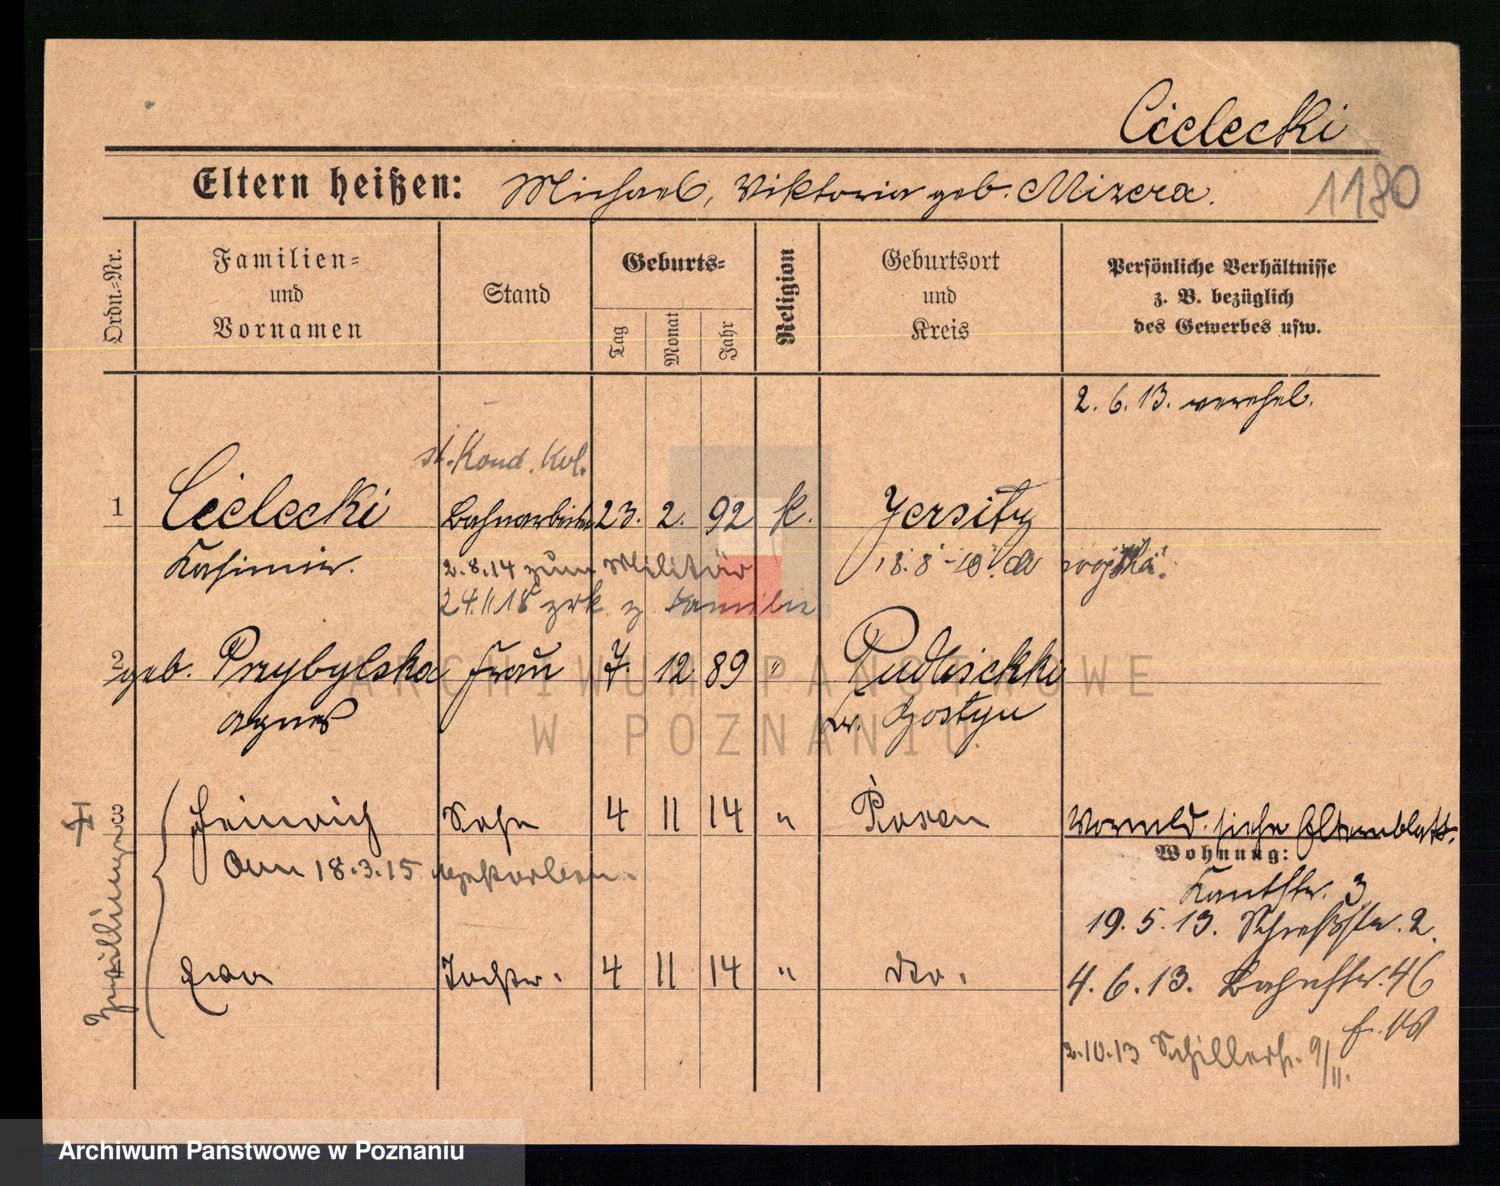 Cielecki
Eltern heißen: Michael, Viktoria geb. Mizera.
1180
Ordn.-Nr.
Familien-
und
Vornamen
Stand
Geburts-
Tag
Monat
Jahr
Religion
Geburtsort
und
Kreis
Persönliche Verhältnisse
z. B. bezüglich
des Gewerbes usw.
2. 6. 13. verehel.
st. Kond. Kol.
1 Cielecki Bahnarbeiter 23. 2. 92 k. Jersitz
Kasimir. 2.8.14 zum Militär 18.8
24.11.18 zrk. z. Familie
2 geb. Przybylska Frau 7. 12. 89 " Pudlischki
Agnes Kr. Gostyn
3 Heinrich Sohn 4 11 14 " Posen Vormeld. siehe Elternblatt.
am 18.3.15 gestorben.
Wohnung:
Kantstr. 3
19. 5. 13. Schießstr. 2.
Zwillinge
Ewa Tochter. 4 11 14 " do. 4. 6. 13. Bahnstr. 46
2.10.13 Schillerstr. 9/II.
ARCHIWUM PAŃSTWOWE
W POZNANIU
Archiwum Państwowe w Poznaniu